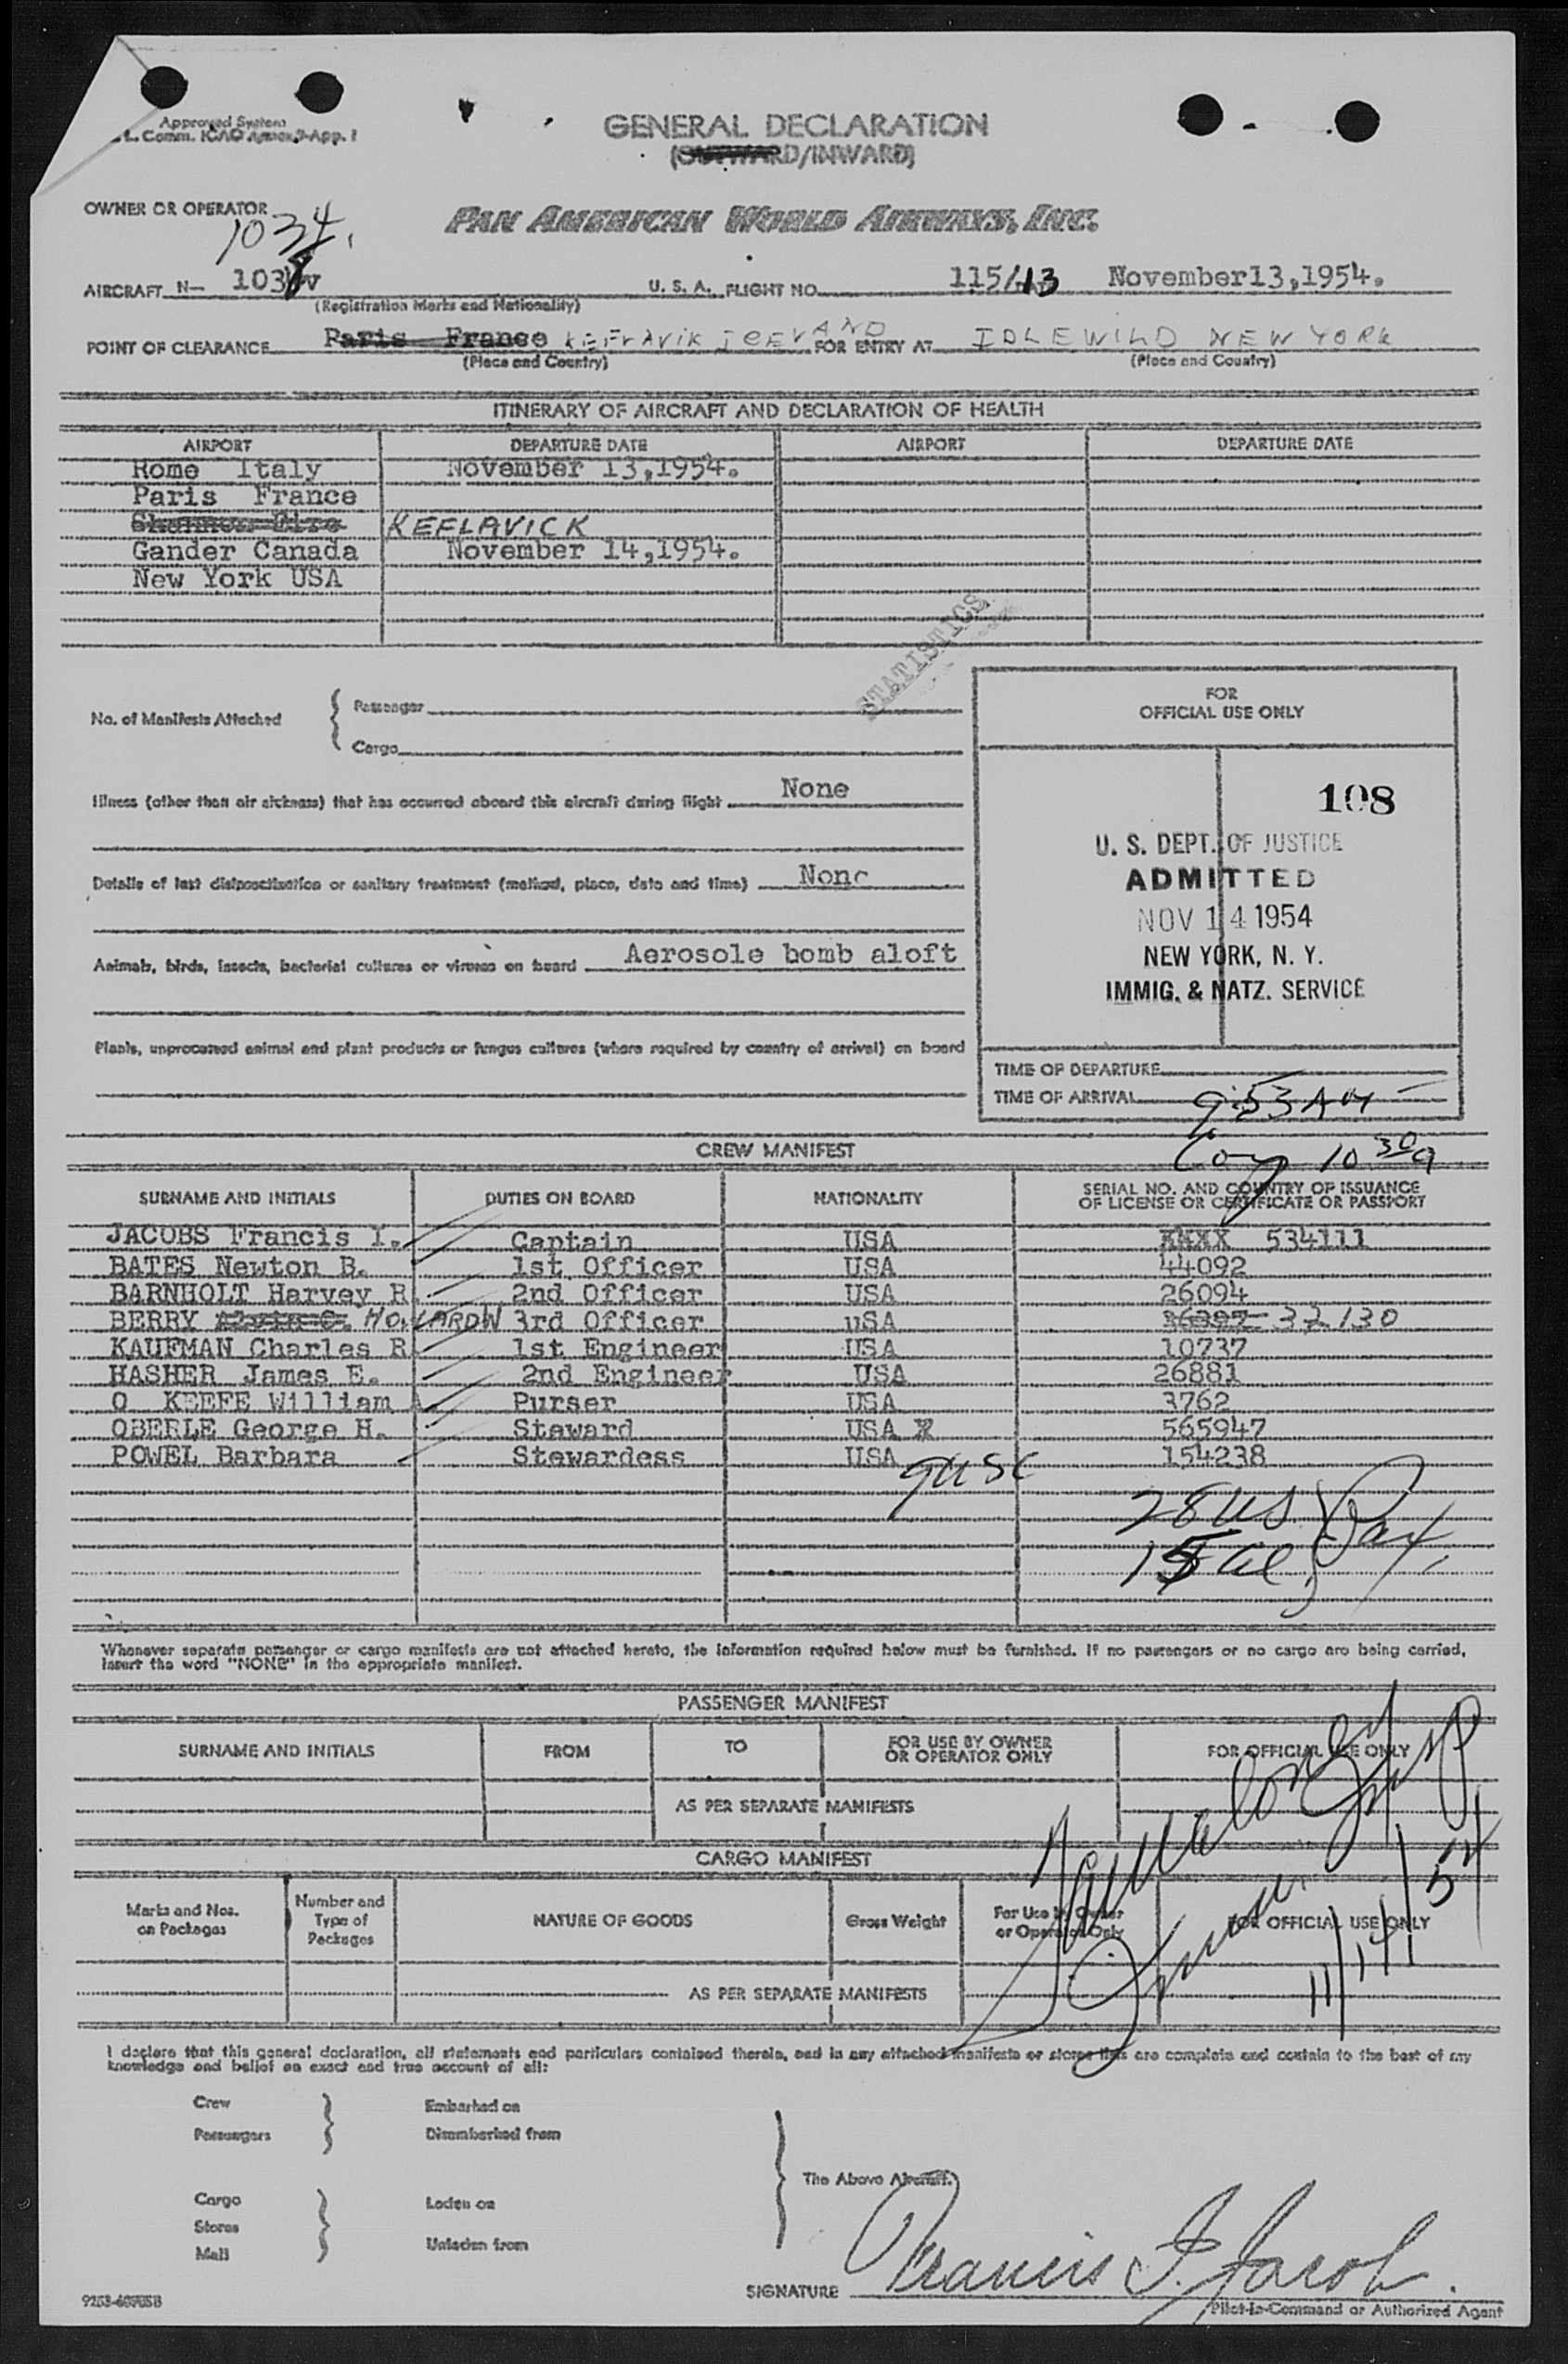 Approved System
L. Comm. ICAO Annex 9-App. 1
GENERAL DECLARATION
(OUTWARD/INWARD)
OWNER OR OPERATOR
1034.
PAN AMERICAN WORLD AIRWAYS, INC.
AIRCRAFT N- 103 V U. S. A. FLIGHT NO. 115/13 November13,1954.
(Registration Marks and Nationality)
POINT OF CLEARANCE Paris France KEFLAVIK ICELAND FOR ENTRY AT IDLEWILD NEW YORK
(Place and Country) (Place and Country)
ITINERARY OF AIRCRAFT AND DECLARATION OF HEALTH
AIRPORT DEPARTURE DATE AIRPORT DEPARTURE DATE
Rome Italy November 13,1954.
Paris France
Shannon Eire KEFLAVICK
Gander Canada November 14,1954.
New York USA
STATISTICS
No. of Manifests Attached { Passenger
Cargo
FOR
OFFICIAL USE ONLY
Illness (other than air sickness) that has occurred aboard this aircraft during flight None
108
U. S. DEPT. OF JUSTICE
ADMITTED
NOV 14 1954
NEW YORK, N. Y.
IMMIG. & NATZ. SERVICE
Details of last disinsectization or sanitary treatment (method, place, date and time) None
Animals, birds, insects, bacterial cultures or viruses on board Aerosole bomb aloft
Plants, unprocessed animal and plant products or fungus cultures (where required by country of arrival) on board
TIME OF DEPARTURE
TIME OF ARRIVAL 9:53 AM
CREW MANIFEST
10 30 a
SURNAME AND INITIALS DUTIES ON BOARD NATIONALITY SERIAL NO. AND COUNTRY OF ISSUANCE
OF LICENSE OR CERTIFICATE OR PASSPORT
JACOBS Francis I. Captain USA XXXX 534111
BATES Newton B. 1st Officer USA 44092
BARNHOLT Harvey R 2nd Officer USA 26094
BERRY HOWARD W 3rd Officer uSA 37130
KAUFMAN Charles R 1st Engineer USA 10737
HASHER James E. 2nd Engineer USA 26881
O KEEFE William A. Purser USA 3762
OBERLE George H. Steward USA X 565947
POWEL Barbara Stewardess USA 154238
9 USC
28 US } Pax
15 al
Whenever separate passenger or cargo manifests are not attached hereto, the information required below must be furnished. If no passengers or no cargo are being carried,
insert the word "NONE" in the appropriate manifest.
PASSENGER MANIFEST
SURNAME AND INITIALS FROM TO FOR USE BY OWNER
OR OPERATOR ONLY FOR OFFICIAL USE ONLY
AS PER SEPARATE MANIFESTS
CARGO MANIFEST
Marks and Nos.
on Packages Number and
Type of
Packages NATURE OF GOODS Gross Weight For Use by Owner
or Operator Only FOR OFFICIAL USE ONLY
11/14/54
AS PER SEPARATE MANIFESTS
I declare that this general declaration, all statements and particulars contained therein, and in any attached manifests or stores lists are complete and contain to the best of my
knowledge and belief an exact and true account of all:
Crew } Embarked on
Passengers Disembarked from
The Above Aircraft.
Cargo Laden on
Stores
Mail Unladen from
SIGNATURE Francis I. Jacobs.
Pilot-in-Command or Authorized Agent